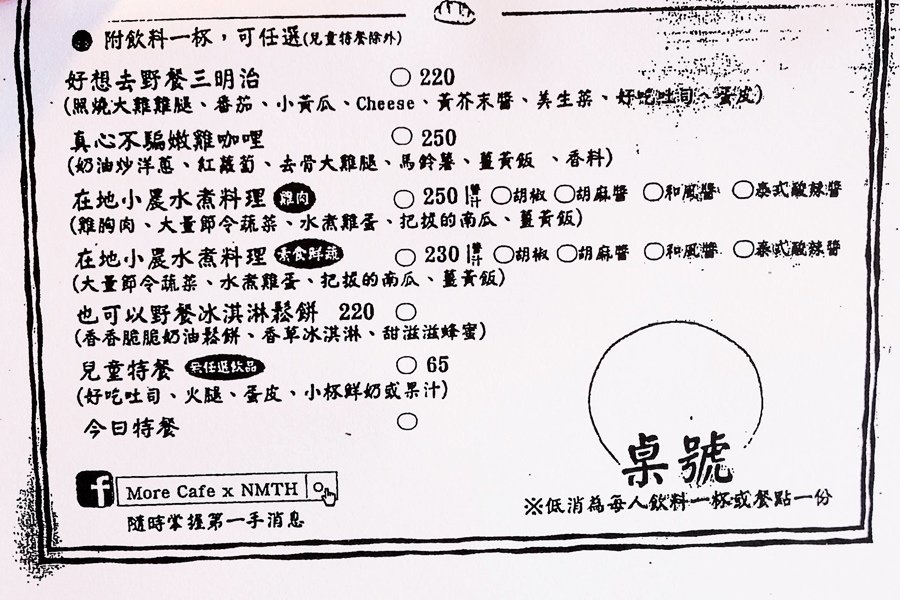 ● 附飲料一杯，可任選(兒童特餐除外)
好想去野餐三明治 ○ 220
(照燒大雞雞腿、番茄、小黃瓜、Cheese、黃芥末醬、美生菜、好吃吐司、蛋皮)
真心不騙嫩雞咖哩 ○ 250
(奶油炒洋蔥、紅蘿蔔、去骨大雞腿、馬鈴薯、薑黃飯、香料)
在地小農水煮料理 雞肉 ○ 250 醬汁 ○胡椒 ○胡麻醬 ○和風醬 ○泰式酸辣醬
(雞胸肉、大量節令蔬菜、水煮雞蛋、挖拔的南瓜、薑黃飯)
在地小農水煮料理 素食鮮蔬 ○ 230 醬汁 ○胡椒 ○胡麻醬 ○和風醬 ○泰式酸辣醬
(大量節令蔬菜、水煮雞蛋、挖拔的南瓜、薑黃飯)
也可以野餐冰淇淋鬆餅 220 ○
(香香脆脆奶油鬆餅、香草冰淇淋、甜滋滋蜂蜜)
兒童特餐 無任選飲品 ○ 65
(好吃吐司、火腿、蛋皮、小杯鮮奶或果汁)
今日特餐 ○
桌號
f More Cafe x NMTH
※低消為每人飲料一杯或餐點一份
隨時掌握第一手消息